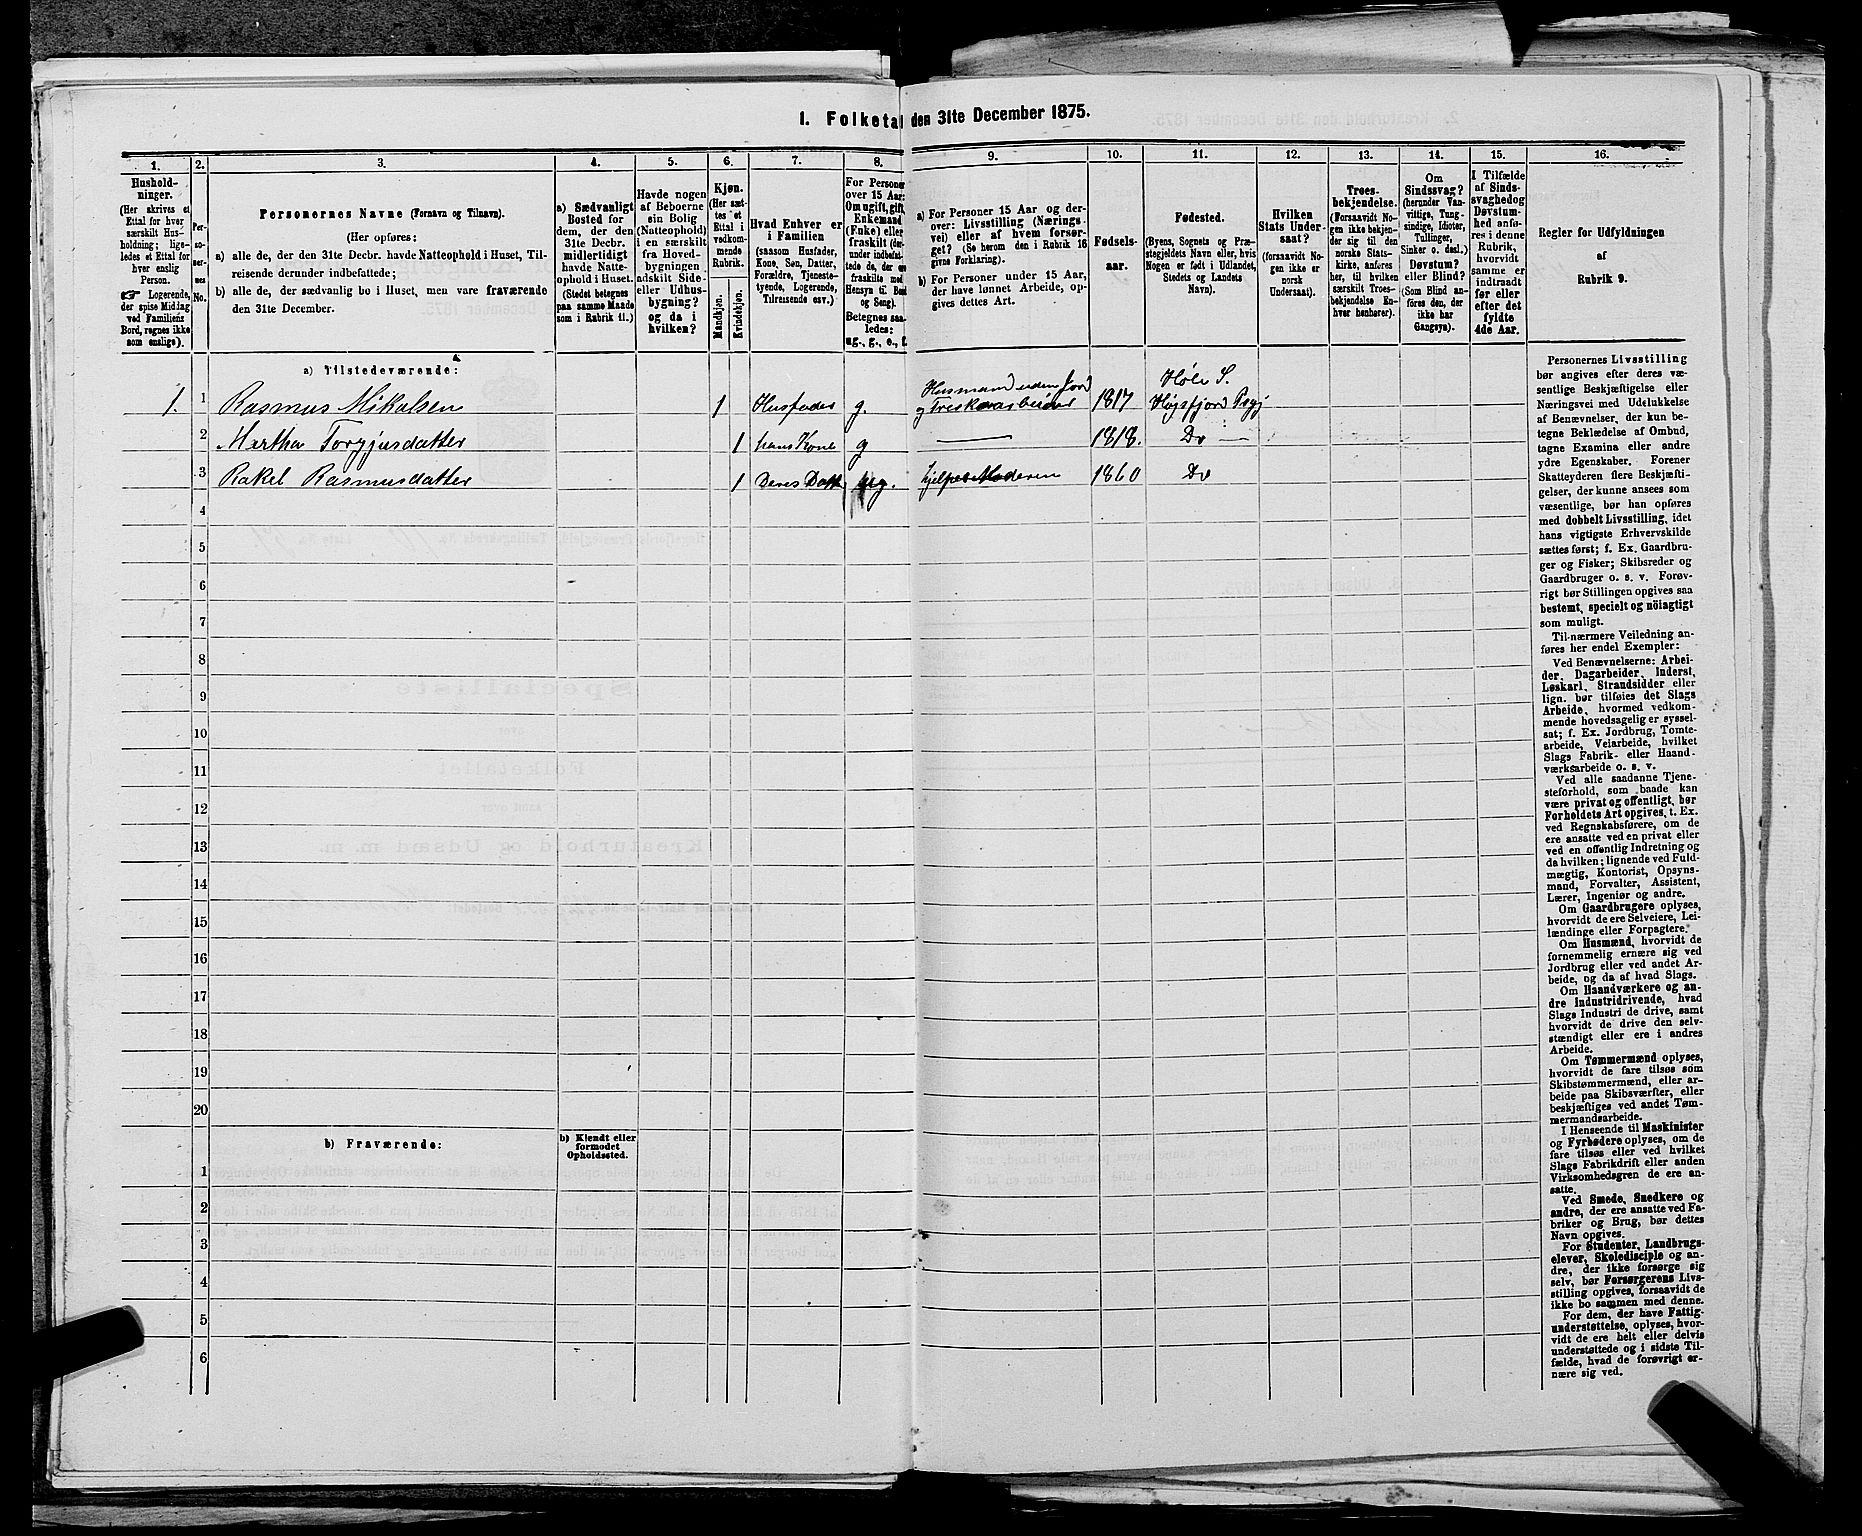 1. Folketal den 31te December 1875.
1. 2. 3. 4. 5. 6. 7. 8. 9. 10. 11. 12. 13. 14. 15. 16.
Hushold-
ninger.
(Her skrives et
Ettal for hver
særskilt Hus-
holdning; lige-
ledes et Ettal for
hver enslig
Person.
☞ Logerende,
der spise Middag
ved Familiens
Bord, regnes ikke
som enslige).
Per-
so-
ner-
nes
No.
Personernes Navne (Fornavn og Tilnavn).
(Her opføres:
a) alle de, der den 31te Decbr. havde Natteophold i Huset, Til-
reisende derunder indbefattede;
b) alle de, der sædvanlig bo i Huset, men vare fraværende
den 31te December.
a) Sædvanligt
Bosted for
dem, der den
31te Decbr.
midlertidigt
havde Natte-
ophold i Huset.
(Stedet betegnes
paa samme Maade
som i Rubrik 11.)
Havde nogen
af Beboerne
sin Bolig
(Natteophold)
i en særskilt
fra Hoved-
bygningen
adskilt Side-
eller Udhus-
bygning?
og da i
hvilken?
Kjøn.
(Her sæt-
tes et
Ettal i
vedkom-
mende
Rubrik.
Mandkjøn.
Kvindekjøn.
Hvad Enhver er
i Familien
(saasom Husfader,
Kone, Søn, Datter,
Forældre, Tjeneste-
tyende, Logerende,
Tilreisende osv.)
For Personer
over 15 Aar:
Om ugift, gift,
Enkemand
(Enke) eller
fraskilt (der-
under indbefat-
tede de, der ere
fraskilte med
Hensyn til Bord
og Seng).
Betegnes saa-
ledes:
ug., g., e., f.
a) For Personer 15 Aar og der-
over: Livsstilling (Nærings-
vei) eller af hvem forsør-
get? (Se herom den i Rubrik 16
givne Forklaring).
b) For Personer under 15 Aar,
der have lønnet Arbeide, op-
gives dettes Art.
Fødsels-
aar.
Fødested.
(Byens, Sognets og Præ-
stegjeldets Navn eller, hvis
Nogen er født i Udlandet,
Stedets og Landets
Navn).
Hvilken
Stats Under-
saat?
(forsaavidt No-
gen ikke er
norsk
Undersaat).
Troes-
bekjendelse.
(Forsaavidt No-
gen ikke bekjen-
der sig til den
norske Stats-
kirke, anføres
her, til hvilken
særskilt Troes-
bekjendelse En-
hver henhører).
Om
Sindssvag?
(herunder Van-
vittige, Tung-
sindige, Idioter,
Tullinger,
Sinker o. desl.)
Døvstum?
eller Blind?
(Som Blind an-
føres den, der
ikke har
Gangsyn).
I Tilfælde
af Sinds-
svaghed og
Døvstum-
hed anfø-
res i denne
Rubrik,
hvorvidt
samme er
indtraadt
før eller
efter det
fyldte
4de Aar.
Regler for Udfyldningen
af
Rubrik 9.
a) Tilstedeværende:
Høle S.
Husmand uden Jord
1. 1 Rasmus Mikalsen 1 Husfader g. og Treskoarbeider 1817 Høgsfjord Prgj
2 Martha Torgjusdatter 1 hans Kone g — 1818. Do —
3 Rakel Rasmusdatter 1 Deres Datt ug. hjelper Moderen 1860 Do
4
5
6
7
8
9
10
11
12
13
14
15
16
17
18
19
20
b) Fraværende:
b) Kjendt eller
formodet
Opholdssted.
1
2
3
4
5
6
Personernes Livsstilling
bør angives efter deres væ-
sentlige Beskjæftigelse eller
Næringsvei med Udelukkelse
af Benævnelser, der kun be-
tegne Beklædelse af Ombud,
tagne Examina eller andre
ydre Egenskaber. Forener
Skatteyderen flere Beskjæfti-
gelser, der kunne ansees som
væsentlige, bør han opføres
med dobbelt Livsstilling, idet
hans vigtigste Erhvervskilde
sættes først; f. Ex. Gaardbru-
ger og Fisker; Skibsreder og
Gaardbruger o. s. v. Forøv-
rigt bør Stillingen opgives saa
bestemt, specielt og nöiagtigt
som muligt.
Til nærmere Veiledning an-
føres her endel Exempler:
Ved Benævnelserne: Arbei-
der, Dagarbeider, Inderst,
Løskarl, Strandsidder eller
lign. bør tilføies det Slags
Arbeide, hvormed vedkom-
mende hovedsagelig er syssel-
sat; f. Ex. Jordbrug, Tomte-
arbeide, Veiarbeide, hvilket
Slags Fabrik- eller Haand-
værksarbeide o. s. v.
Ved alle saadanne Tjene-
steforhold, som baade kan
være privat og offentligt, bør
Forholdets Art opgives, t. Ex.
ved Regnskabsførere, om de
ere ansatte ved en privat eller
ved en offentlig Indretning og
da hvilken; lignende ved Fuld-
mægtig, Kontorist, Opsyns-
mand, Forvalter, Assistent,
Lærer, Ingeniør og andre.
Om Gaardbrugere oplyses,
hvorvidt de ere Selveiere, Lei-
lændinge eller Forpagtere.
Om Husmænd, hvorvidt de
fornemmelig ernære sig ved
Jordbrug eller ved andet Ar-
beide, og da af hvad Slags.
Om Haandværkere og an-
dre Industridrivende, hvad
Slags Industri de drive, samt
hvorvidt de drive den selv-
stændigt eller ere i andres
Arbeide.
Om Tømmermænd oplyses,
hvorvidt de fare tilsøs som
Skibstømmermænd, eller ar-
beide paa Skibsværfter, eller
beskjæftiges ved andet Tøm-
mermandsarbeide.
I Henseende til Maskinister
og Fyrbødere oplyses, om de
fare tilsøs eller ved hvilket
Slags Fabrikdrift eller anden
Virksomhedsgren de ere an-
satte.
Ved Smede, Snedkere og
andre, der ere ansatte ved Fa-
briker og Brug, bør dettes
Navn opgives.
For Studenter, Landbrugs-
elever, Skoledisciple og an-
dre, der ikke forsørge sig
selv, bør Forsørgerens Livs-
stilling opgives, forsaavidt de
ikke bo sammen med denne.
For dem, der have Fattig-
understøttelse, oplyses, hvor-
vidt de ere helt eller delvis
understøttede og i sidste Til-
fælde, hvad de forøvrigt er-
nære sig ved.